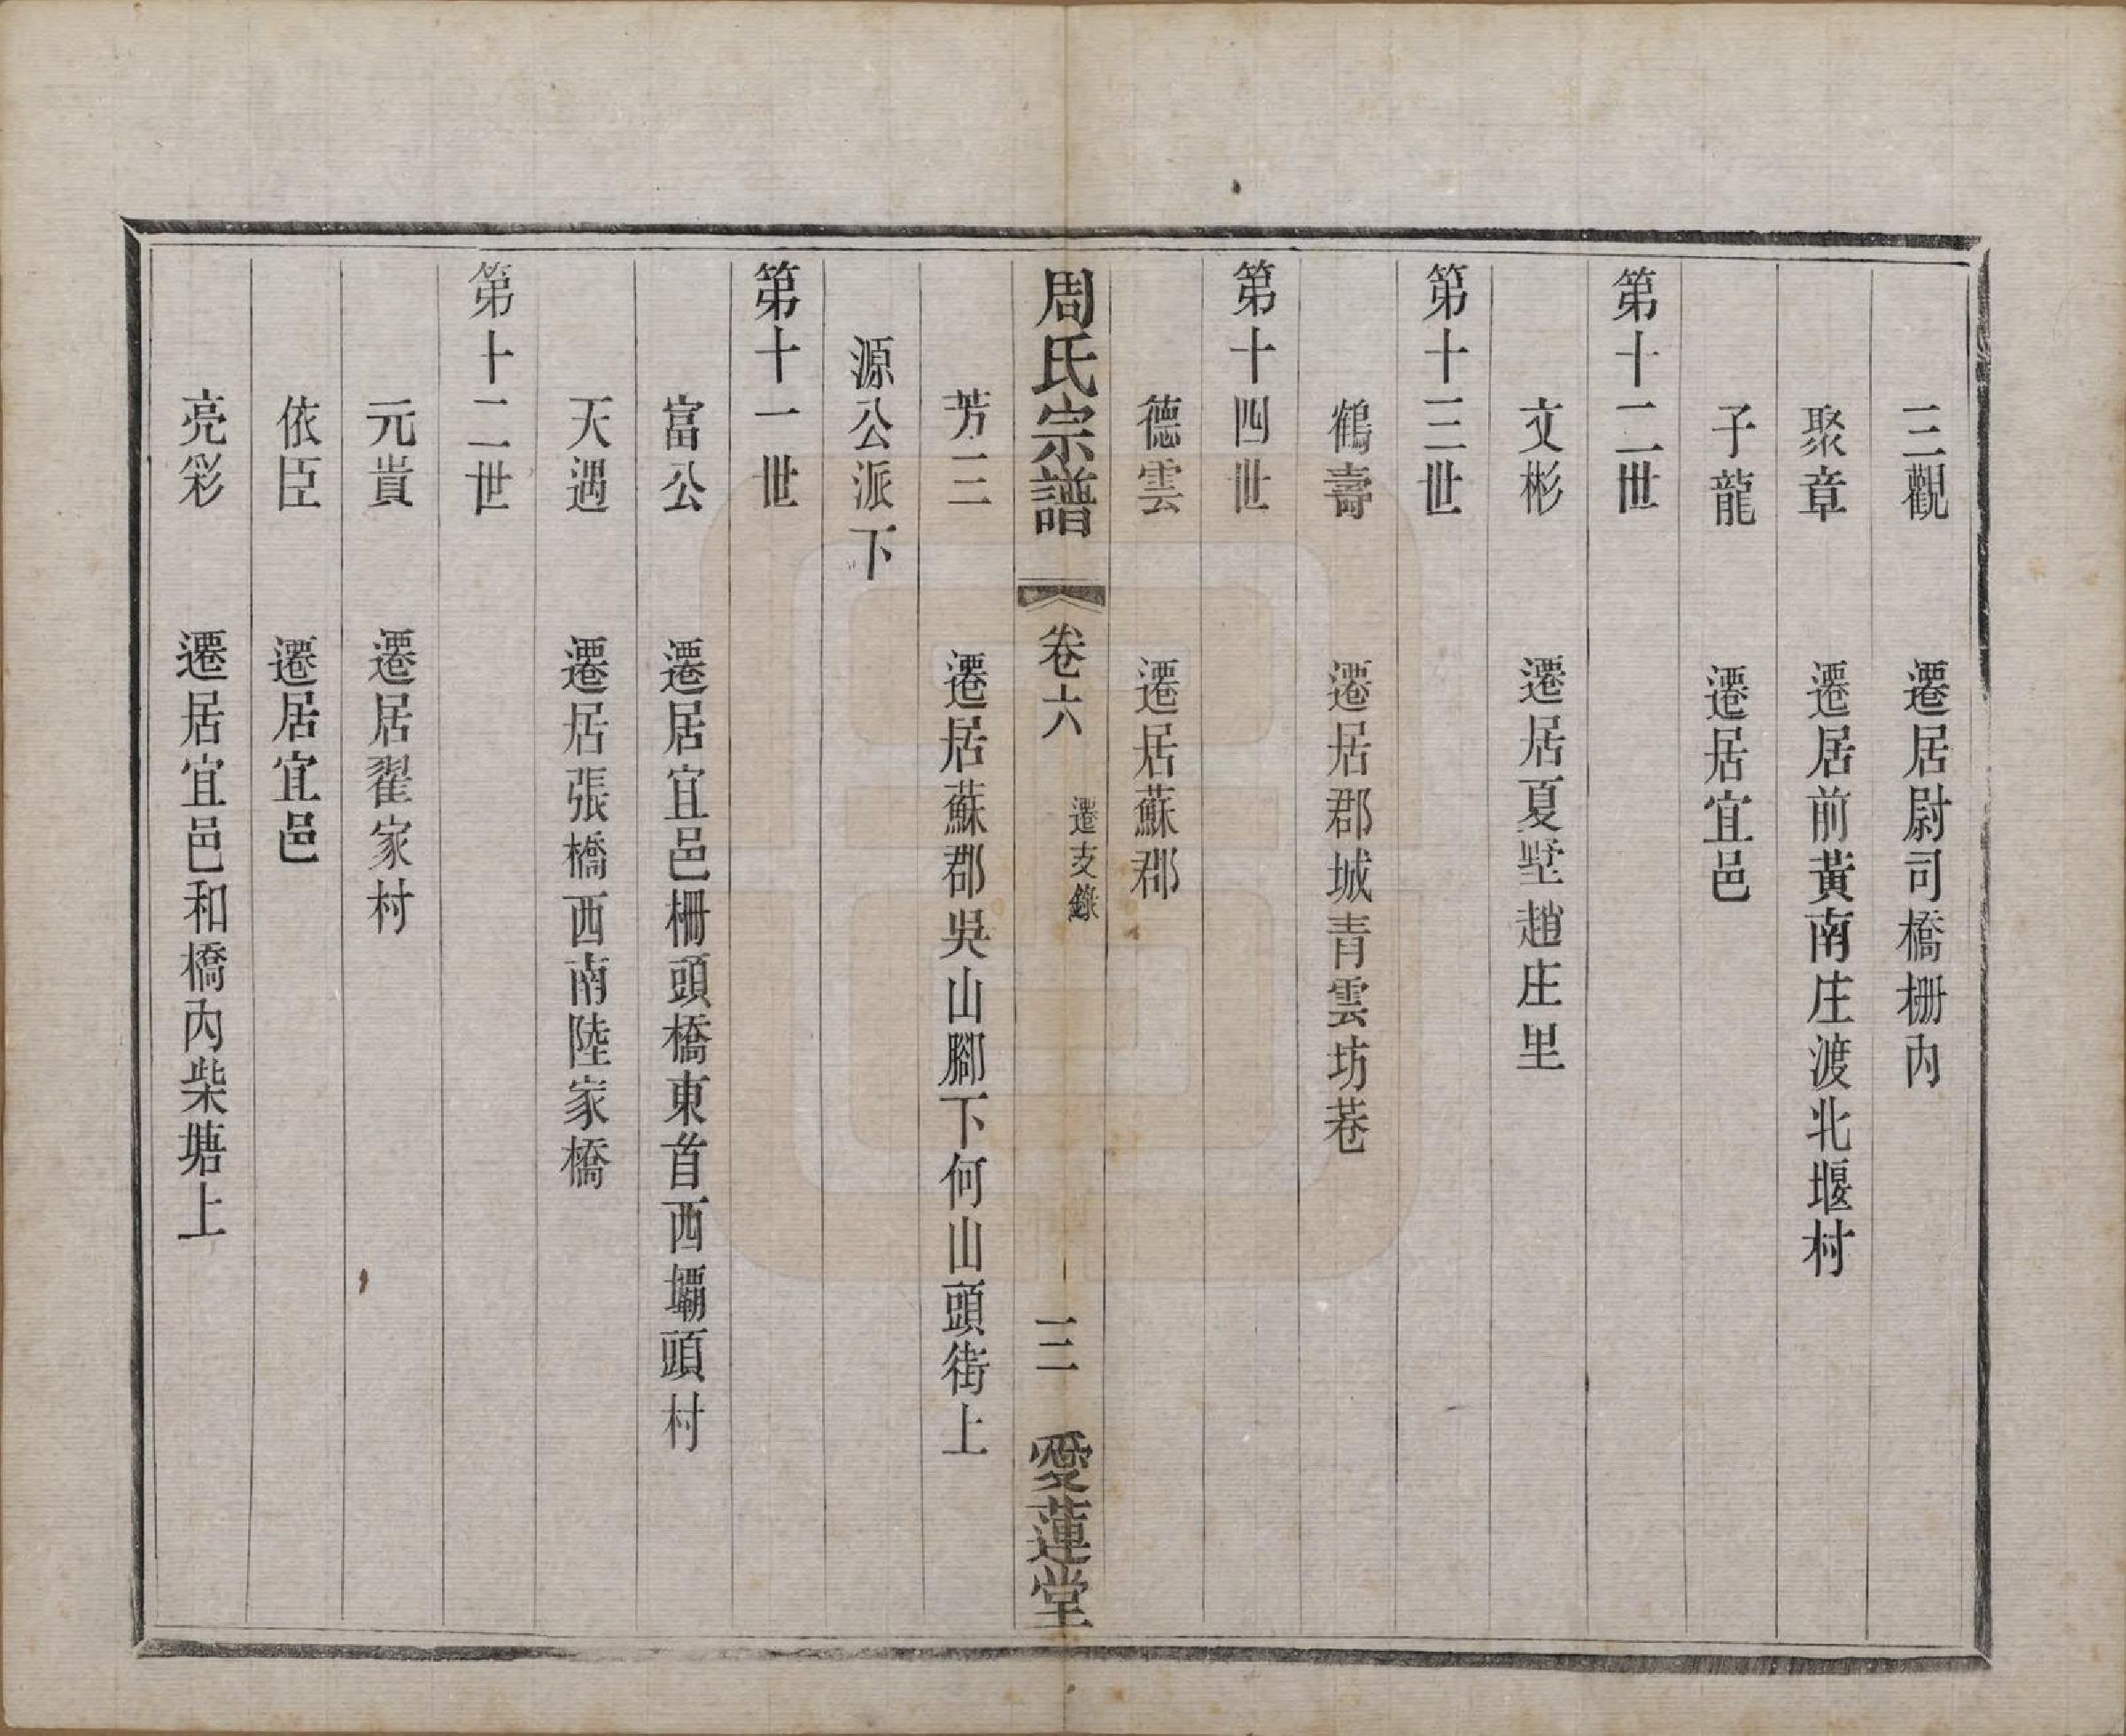 三觀　遷居尉司橋栅內
聚章　遷居前黃南庄渡北堰村
子龍　遷居宜邑
第十二世
文彬　遷居夏墅趙庄里
第十三世
鶴壽　遷居郡城青雲坊巷
第十四世
德雲　遷居蘇郡
周氏宗譜　卷六　遷支錄　三　愛蓮堂
芳三　遷居蘇郡吳山腳下何山頭街上
源公派下
第十一世
富公　遷居宜邑柵頭橋東首西壩頭村
天遇　遷居張橋西南陸家橋
第十二世
元貴　遷居翟家村
依臣　遷居宜邑
亮彩　遷居宜邑和橋內柴塘上